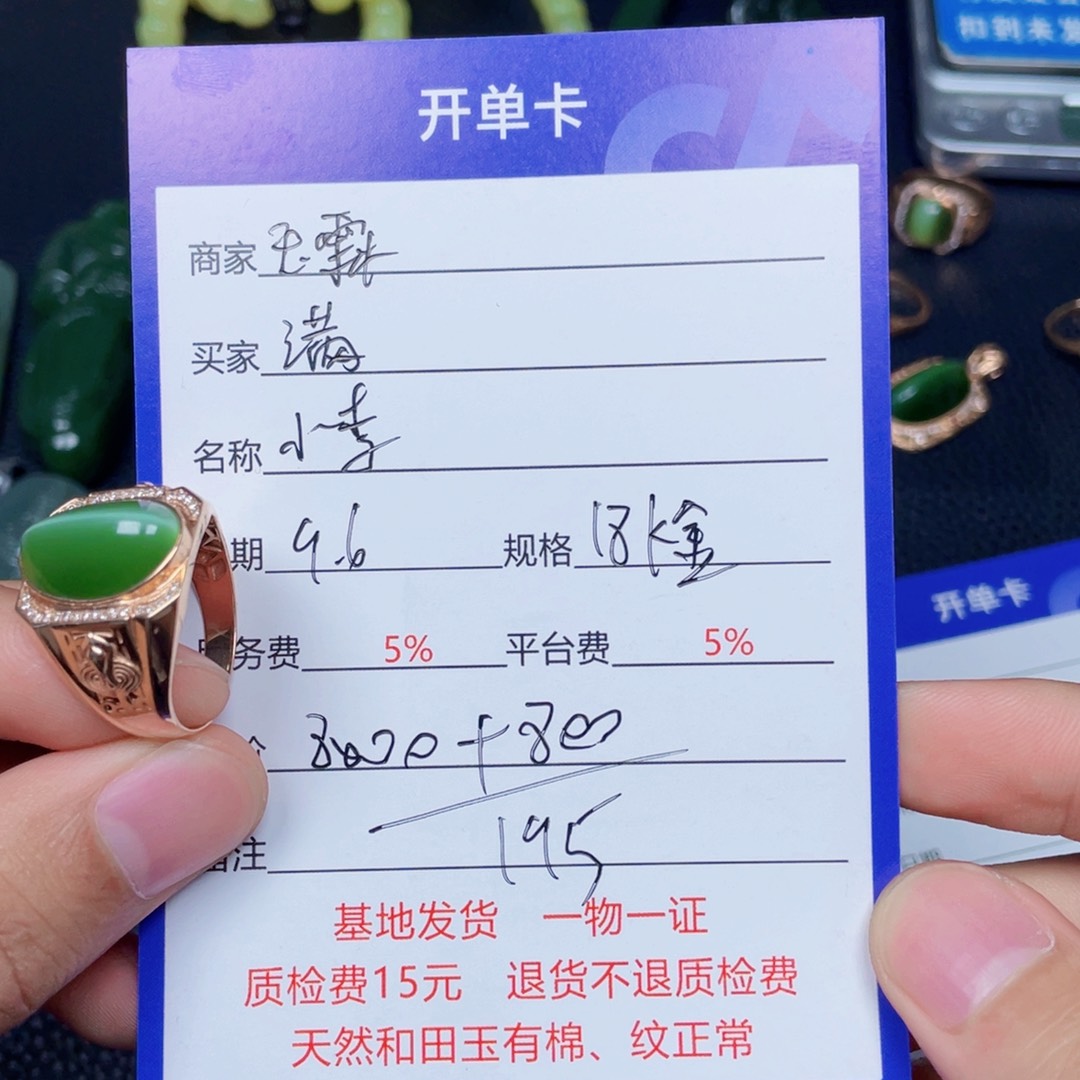 扣到未发
开单卡
商家
买家 满
名称 小李
期 9.6 规格 18K金
务费 5% 平台费 5%
8000+800
注 195
基地发货 一物一证
质检费15元 退货不退质检费
天然和田玉有棉、纹正常
开单卡